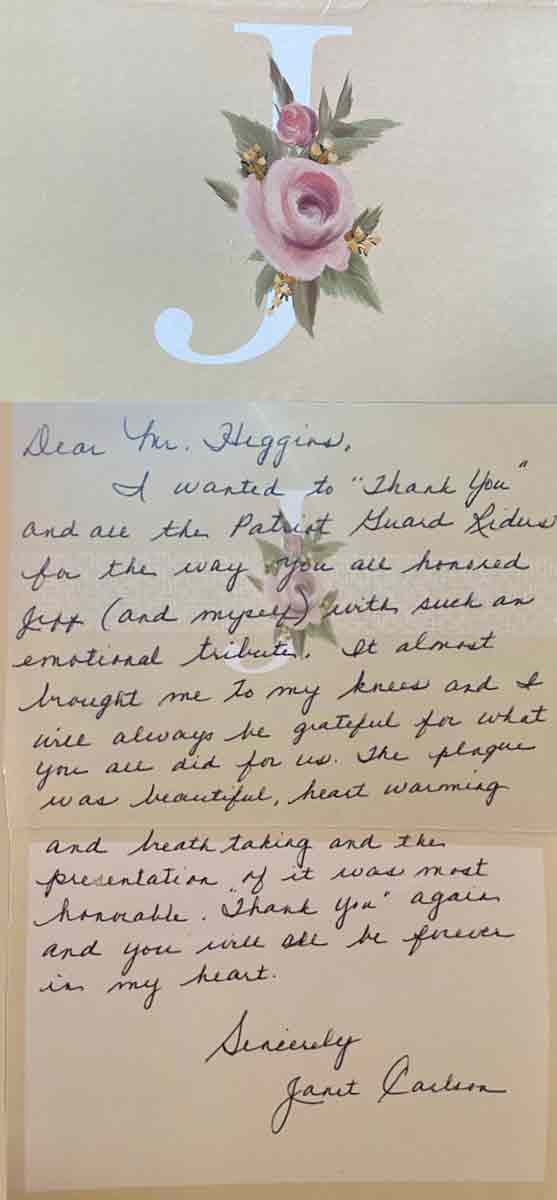 J
Dear Mr. Higgins,
I wanted to "Thank You"
and all the Patriot Guard Riders
for the way you all honored
Jeff (and myself) with such an
emotional tribute. It almost
brought me to my knees and I
will always be grateful for what
you all did for us. The plaque
was beautiful, heart warming
and breath taking and the
presentation of it was most
honorable. "Thank You" again
and you will all be forever
in my heart.
Sincerely
Janet Carlson